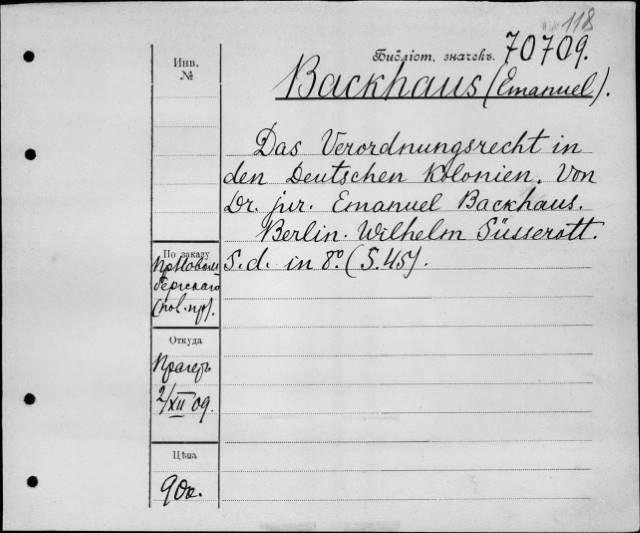 118
Библіот. значекъ. 70709.
Инв.
№
Backhaus (Emanuel).
Das Verordnungsrecht in
den Deutschen Kolonien. Von
Dr. jur. Emanuel Backhaus.
Berlin. Wilhelm Süsserott.
S.d. in 8º. (S. 45).
По заказу
бергскаго
Откуда
Прагеръ
2/XII 09.
Цѣна
90к.